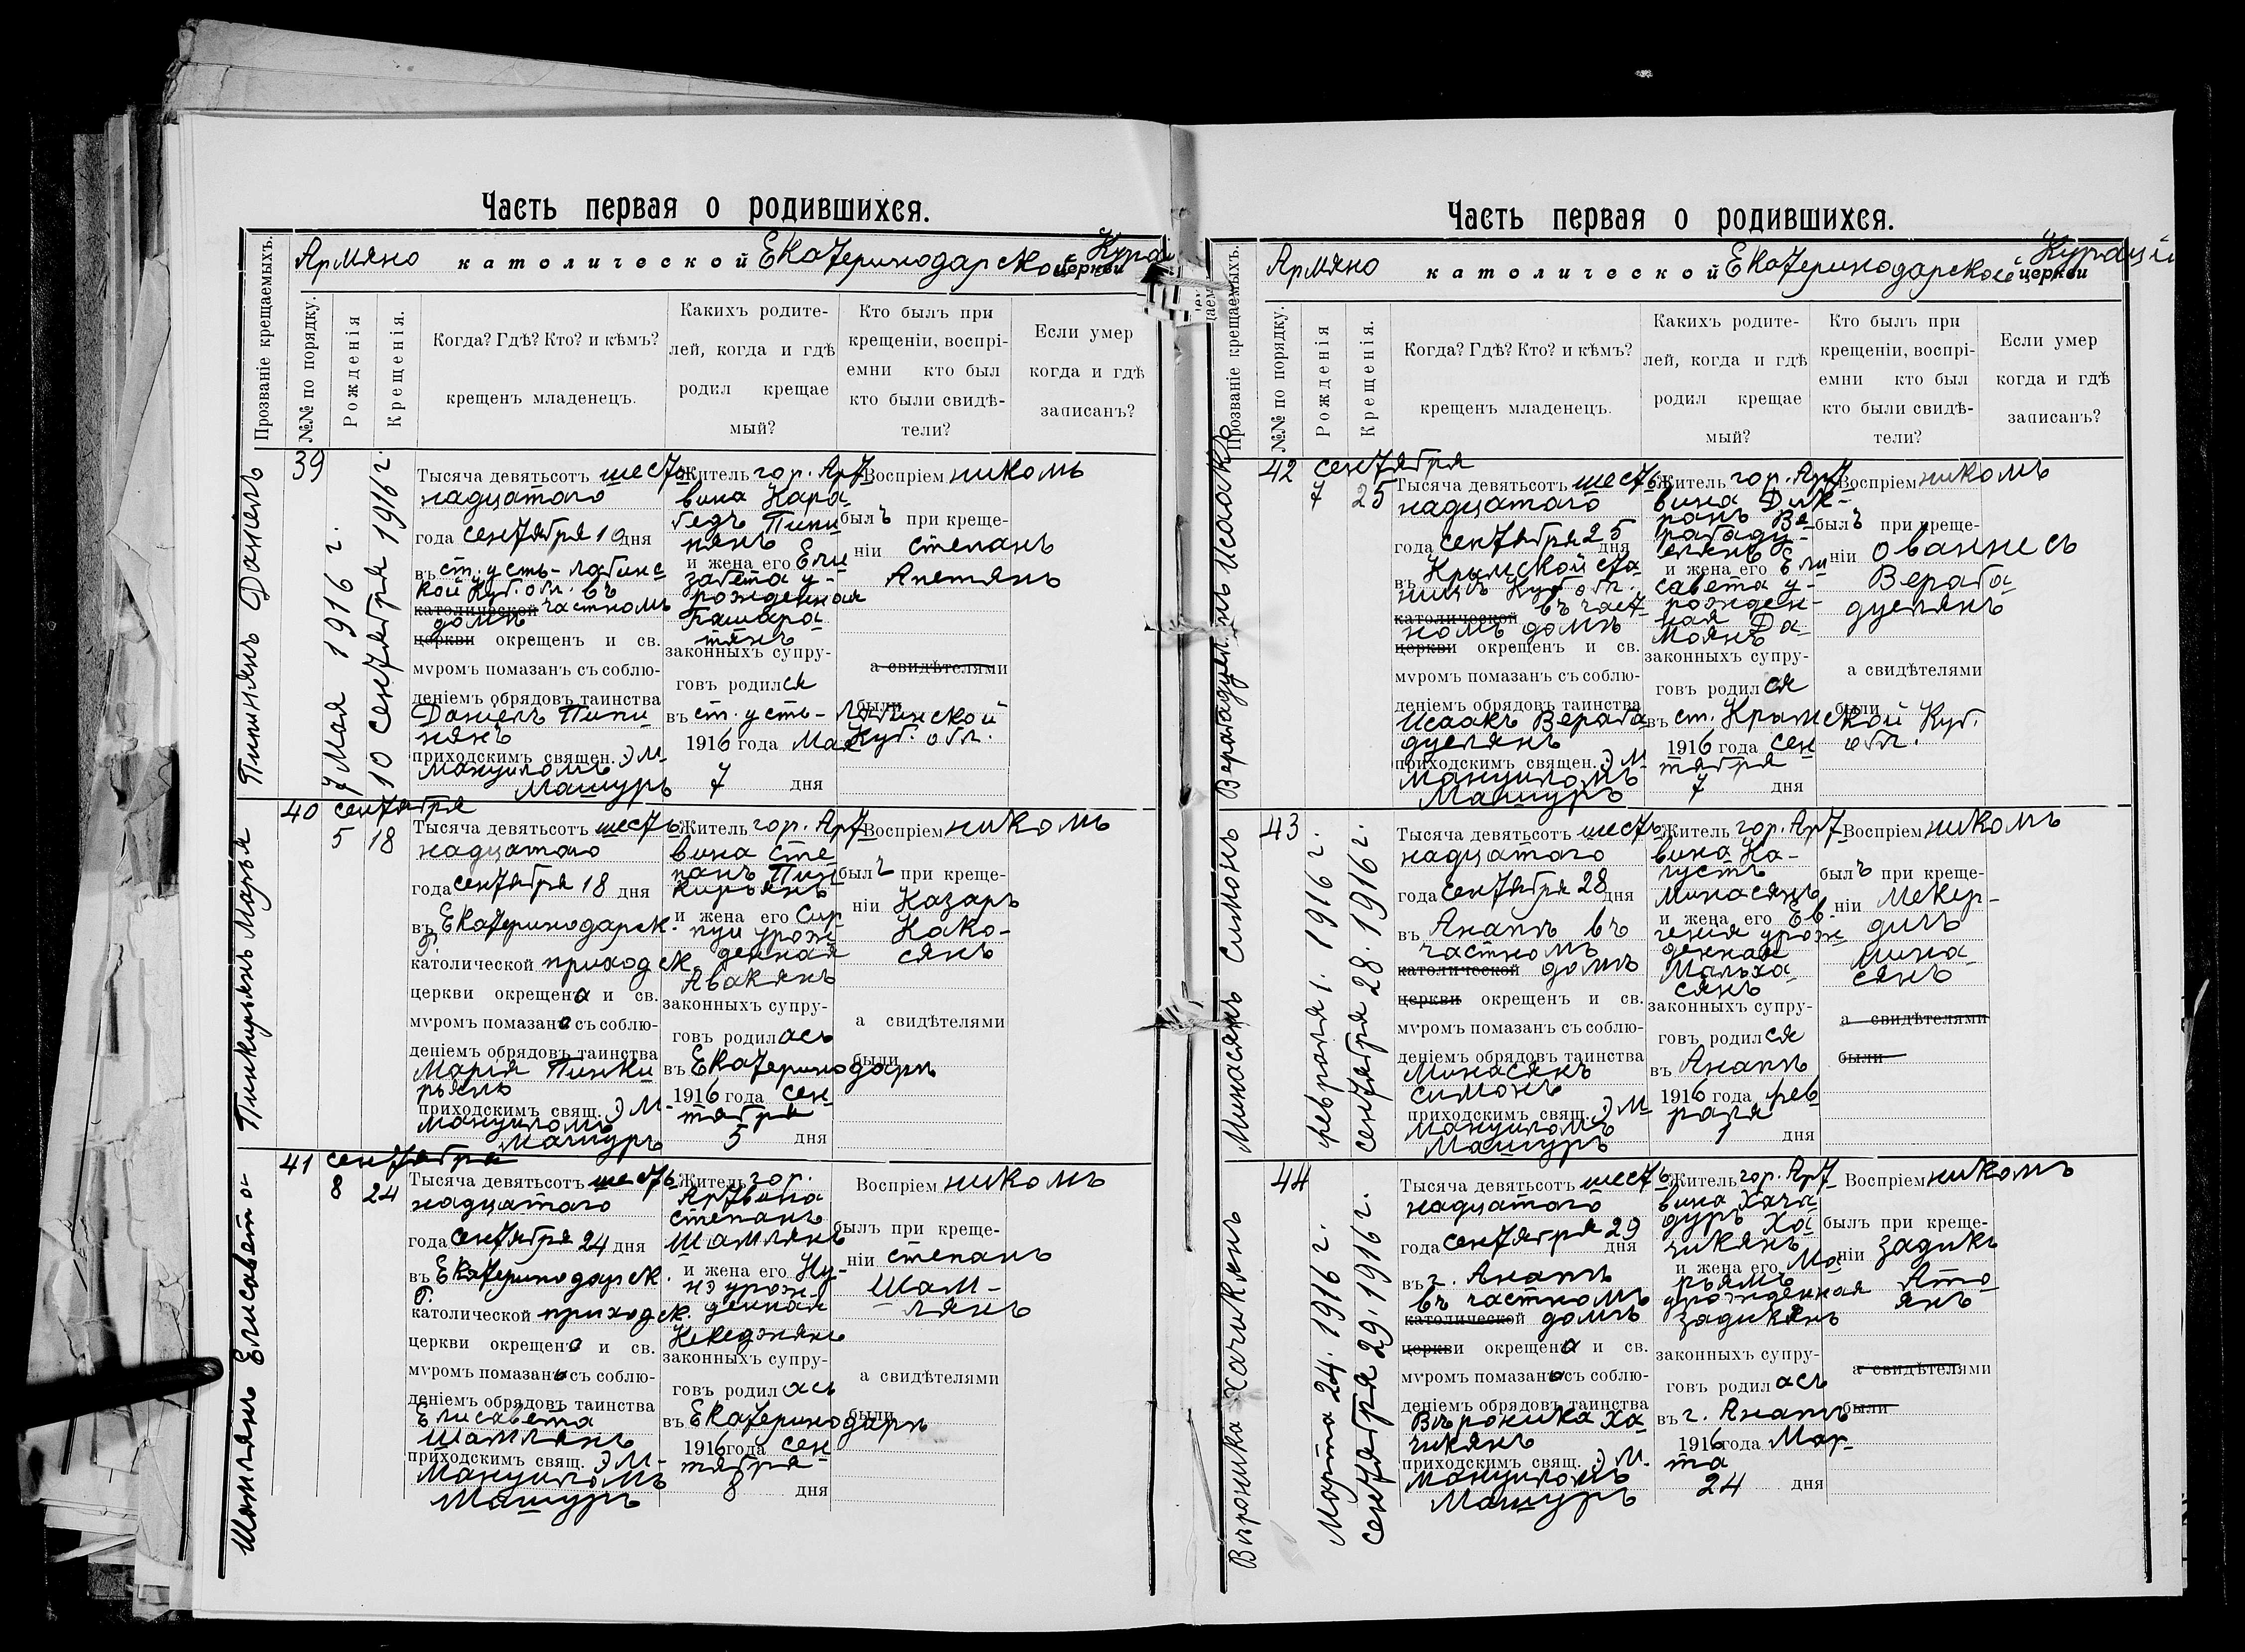 Часть первая о родившихся.
Армяно католической Екатеринодарской церкви
Прозваніе крещаемыхъ.
№№ по порядку.
Рожденія
Крещенія.
Когда? Гдѣ? Кто? и кѣмъ?
крещенъ младенецъ.
Какихъ родите-
лей, когда и гдѣ
родил крещае
мый?
Кто былъ при
крещеніи, воспрі-
емни кто был
кто были свидѣ-
тели?
Если умер
когда и гдѣ
записанъ?
Пипинянъ Даніелъ
39
7 Мая 1916 г.
10 сентября 1916 г.
Тысяча девятьсотъ шест
надцатаго
года сентября 10 дня
въ ст. усть-лабинс
кой Куб. обл. въ
католической частномъ
домѣ
церкви окрещенъ и св.
мѵромъ помазан съ соблю-
деніемъ обрядовъ таинства
Даніелъ Пипи
нянъ
приходскимъ священ. Эм-
мануиломъ
Машуръ
Житель гор. Арт
вина Кара
бедъ Пипи
нянъ
и жена его Ели
завета у-
рожденная
законныхъ супру-
говъ родился
въ ст. усть-лабинской
Куб. обл.
1916 года Мая
7 дня
Воспріемникомъ
былъ при креще-
ніи степанъ
Апетянъ
а свидѣтелями
были
Пинкирьянъ Марья
40
сентября
5 18
Тысяча девятьсотъ шесть
надцатаго
года сентября 18 дня
въ Екатеринодарск.
католической приходск.
церкви окрещена и св.
мѵромъ помазана съ соблю-
деніемъ обрядовъ таинства
Марія Пинки
рьянъ
приходскимъ свящ. Эм-
мануиломъ
Машуръ
Житель гор. Арт
вина Сте
панъ Пин
кирьянъ
и жена его Сир
пуи урож
денная
Авакянъ
законныхъ супру-
говъ родилась
въ Екатеринодарѣ
1916 года сен
тября
5 дня
Воспріемникомъ
былъ при креще-
ніи Казаръ
Како-
сянъ
а свидѣтелями
были
Шамлянъ Елисавета
41
сентября
8 24
Тысяча девятьсотъ шесть
надцатаго
года сентября 24 дня
въ Екатеринодарск.
католической приходск.
церкви окрещена и св.
мѵромъ помазана съ соблю-
деніемъ обрядовъ таинства
Елисавета
Шамлянъ
приходскимъ свящ. Эм-
мануиломъ
Машуръ
Житель гор.
Артвина
степанъ
Шамлянъ
и жена его
урож-
денная
законныхъ супру-
говъ родилась
въ Екатеринодарѣ
1916 года сен
тября
8 дня
Воспріемникомъ
былъ при креще-
ніи степанъ
Шам-
лянъ
а свидѣтелями
были
Часть первая о родившихся.
Армяно католической Екатеринодарской Кураціи церкви
Прозваніе крещаемыхъ.
№№ по порядку.
Рожденія
Крещенія.
Когда? Гдѣ? Кто? и кѣмъ?
крещенъ младенецъ.
Какихъ родите-
лей, когда и гдѣ
родил крещае
мый?
Кто былъ при
крещеніи, воспрі-
емни кто был
кто были свидѣ-
тели?
Если умер
когда и гдѣ
записанъ?
42
сентября
7 25
Тысяча девятьсотъ шесть
надцатаго
года сентября 25 дня
въ Крымской ста
ницѣ Куб обл.
въ част-
католической
номъ домѣ
церкви окрещенъ и св.
мѵромъ помазан съ соблю-
деніемъ обрядовъ таинства
Исаакъ Вераба
дуелянъ
приходскимъ священ. Эм
мануиломъ
Машуръ
Житель гор. Арт
вина Дик-
ранъ Ве
рабаду-
елянъ
и жена его Ели
савета у-
рожден-
ная Да-
моянъ
законныхъ супру-
говъ родился
въ ст. Крымской Куб.
обл.
1916 года сен
тября
7 дня
Воспріемникомъ
былъ при креще-
ніи Ованнесъ
Вераба
дуелянъ
а свидѣтелями
были
Минасянъ Симонъ
43
февраля 1. 1916 г.
сентября 28. 1916 г.
Тысяча девятьсотъ шесть
надцатаго
года сентября 28 дня
въ Анапѣ въ
частномъ
католической домѣ
церкви окрещенъ и св.
мѵромъ помазан съ соблю-
деніемъ обрядовъ таинства
Минасянъ
симонъ
приходскимъ свящ. Эм
мануиломъ
Машуръ
Житель гор. Арт
вина Ка-
густъ
Минасянъ
и жена его Ев-
генія урож
денная
Малха-
сянъ
законныхъ супру-
говъ родился
въ Анапѣ
1916 года фев
раля
1 дня
Воспріемникомъ
былъ при креще-
ніи Мекер-
дичъ
Мина-
сянъ
а свидѣтелями
были
Вѣроника Хачикянъ
44
Марта 24. 1916 г.
сентября 29. 1916 г.
Тысяча девятьсотъ шесть
надцатаго
года сентября 29 дня
въ г. Анапѣ
въ частномъ
католической домѣ
церкви окрещена и св.
мѵромъ помазана съ соблю-
деніемъ обрядовъ таинства
Вѣроника Ха
чикянъ
приходскимъ свящ. Эм.
мануиломъ
Машуръ
Житель гор. Арт
вина Хача
дуръ Ха
чикянъ
и жена его Ма
рьямъ
урожденная
Задикянъ
законныхъ супру-
говъ родилась
въ г. Анапѣ
1916 года Мар-
та
24 дня
Воспріемникомъ
былъ при креще-
ніи Задикъ
Ато
янъ
а свидѣтелями
были